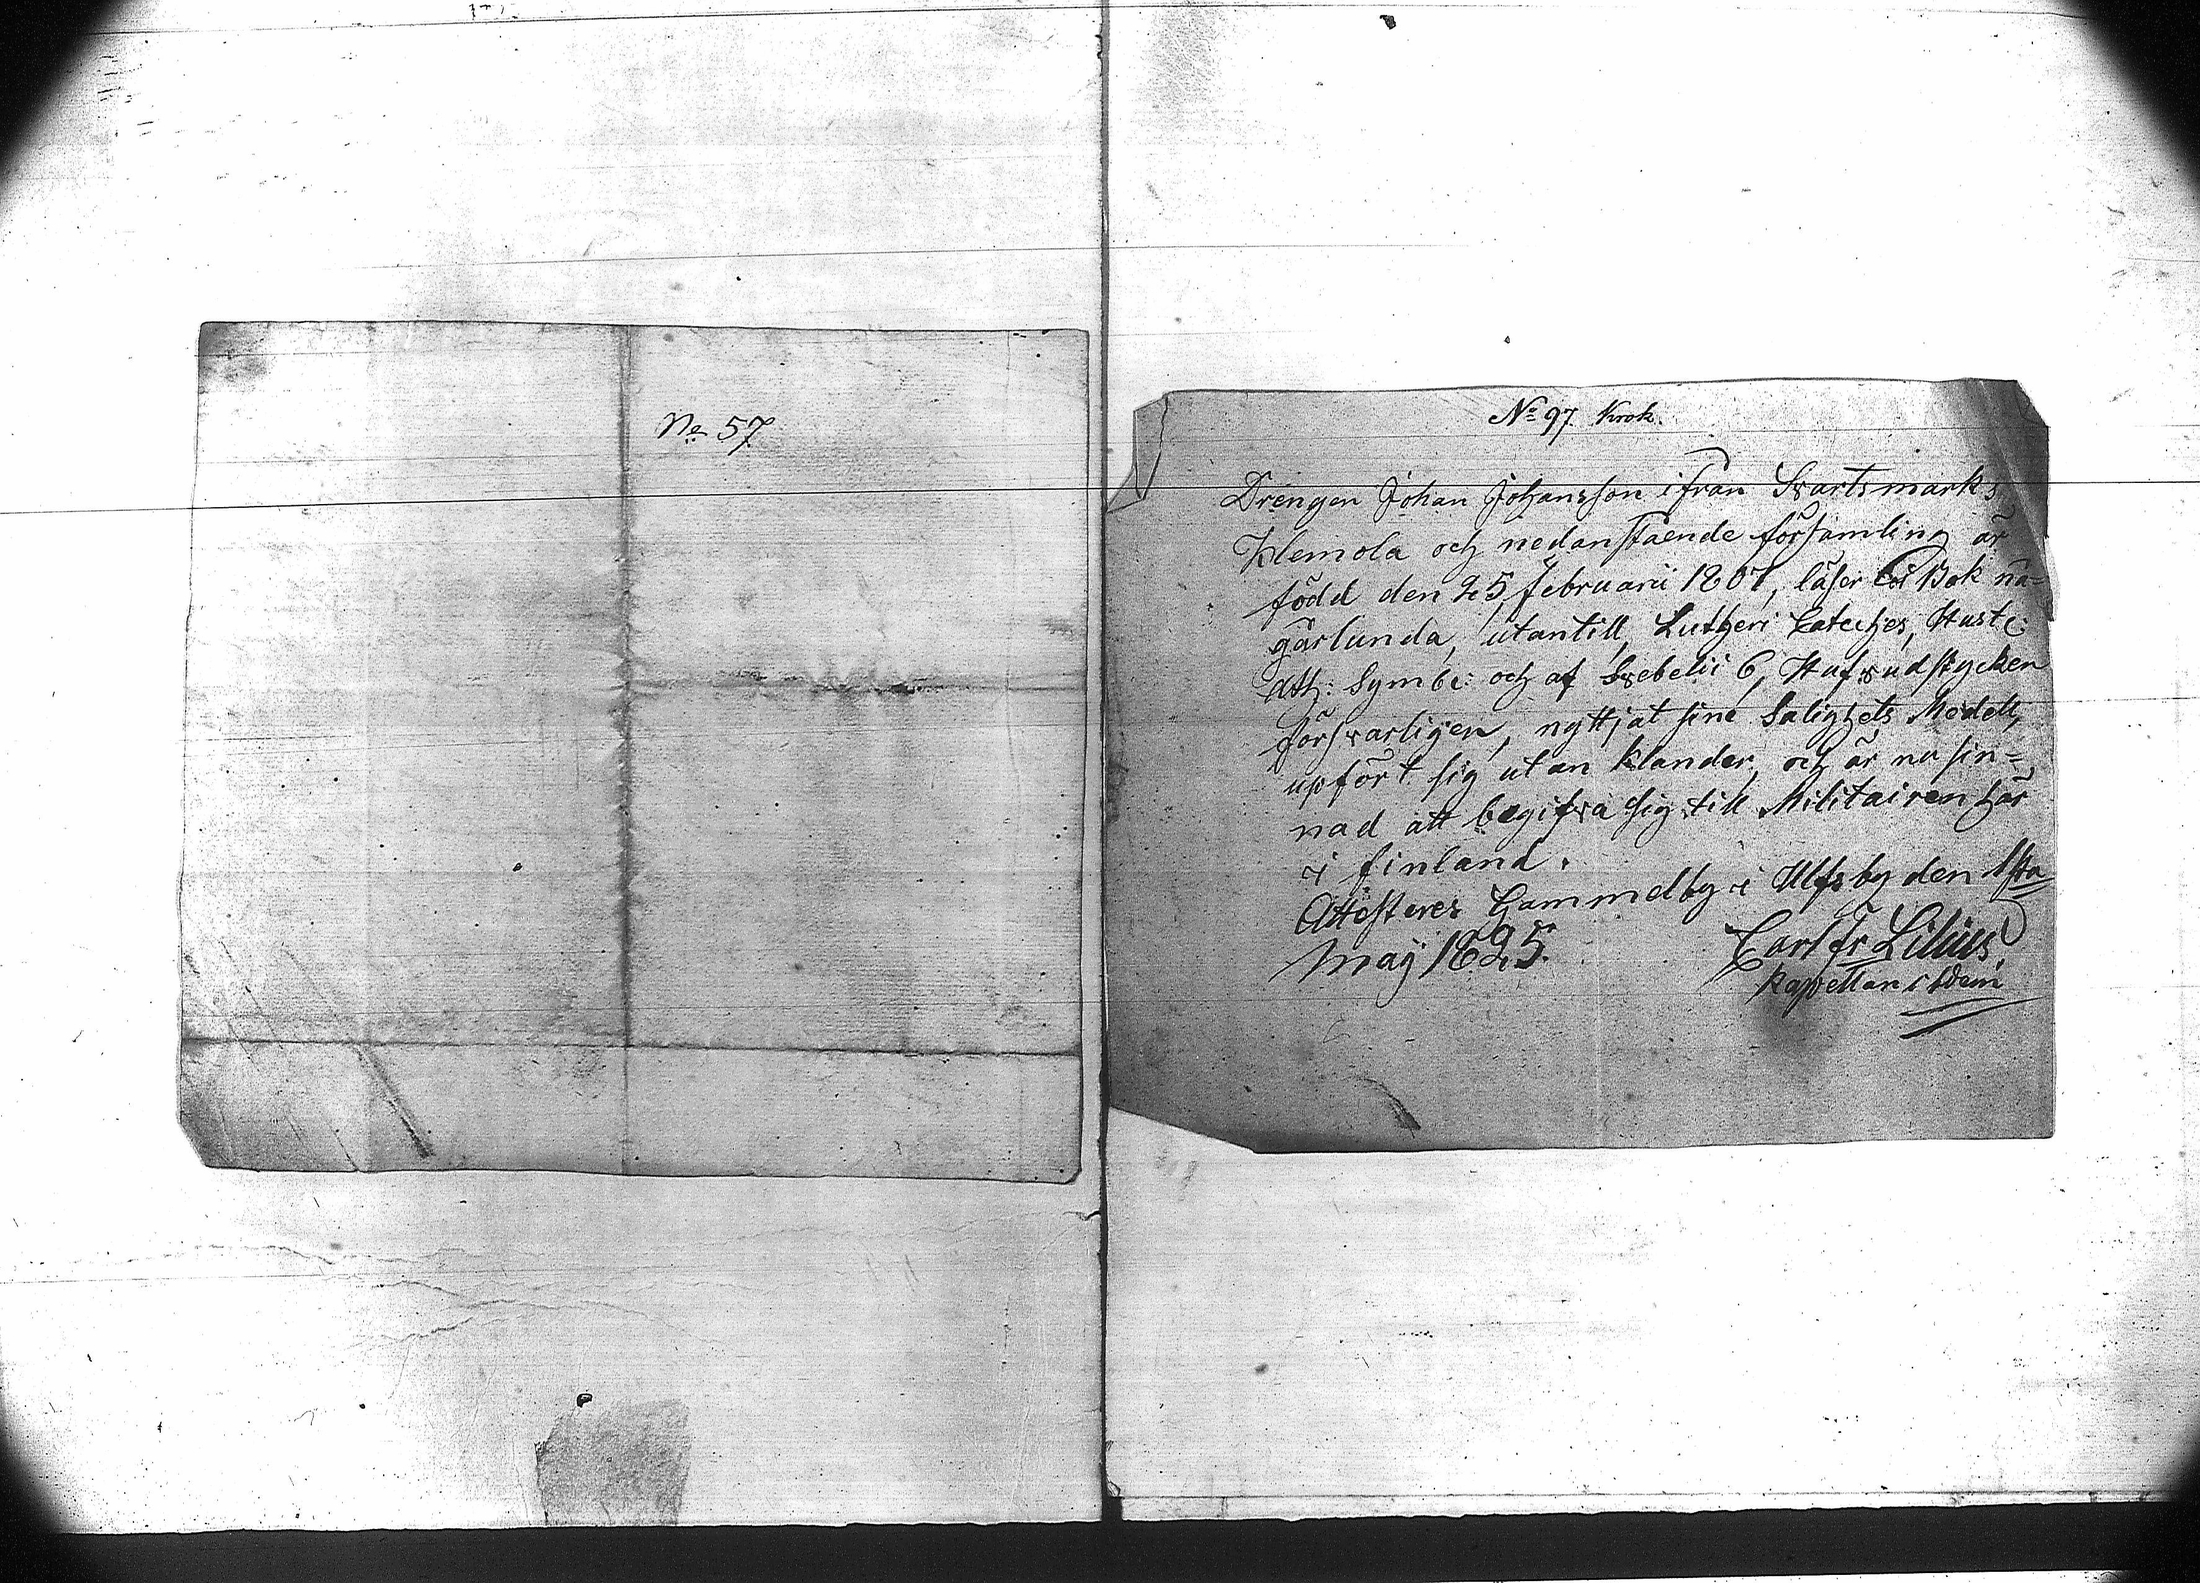 No 57
No 97. Krok.
Drengen Johan Johansson ifrån Svartsmarks
Klemola och nedanstående församling är
född den 25 Februarii 1807, läser Bok nå=
gårlunda, utantill, Lutheri Cateches, Hust:
Ath: Symb: och af Svebelii 6, Hufvudstycken
försvarligen, nyttjat sine Salighets Medell,
upfört sig utan klander, och är nu sin=
nad att begifva sig till Militairen här
i Finland.
Attesteres Gammelby i Ulfsby den 1sta
Maÿ 1825.
Carl Fr Lilius.
Kapellan i bdem